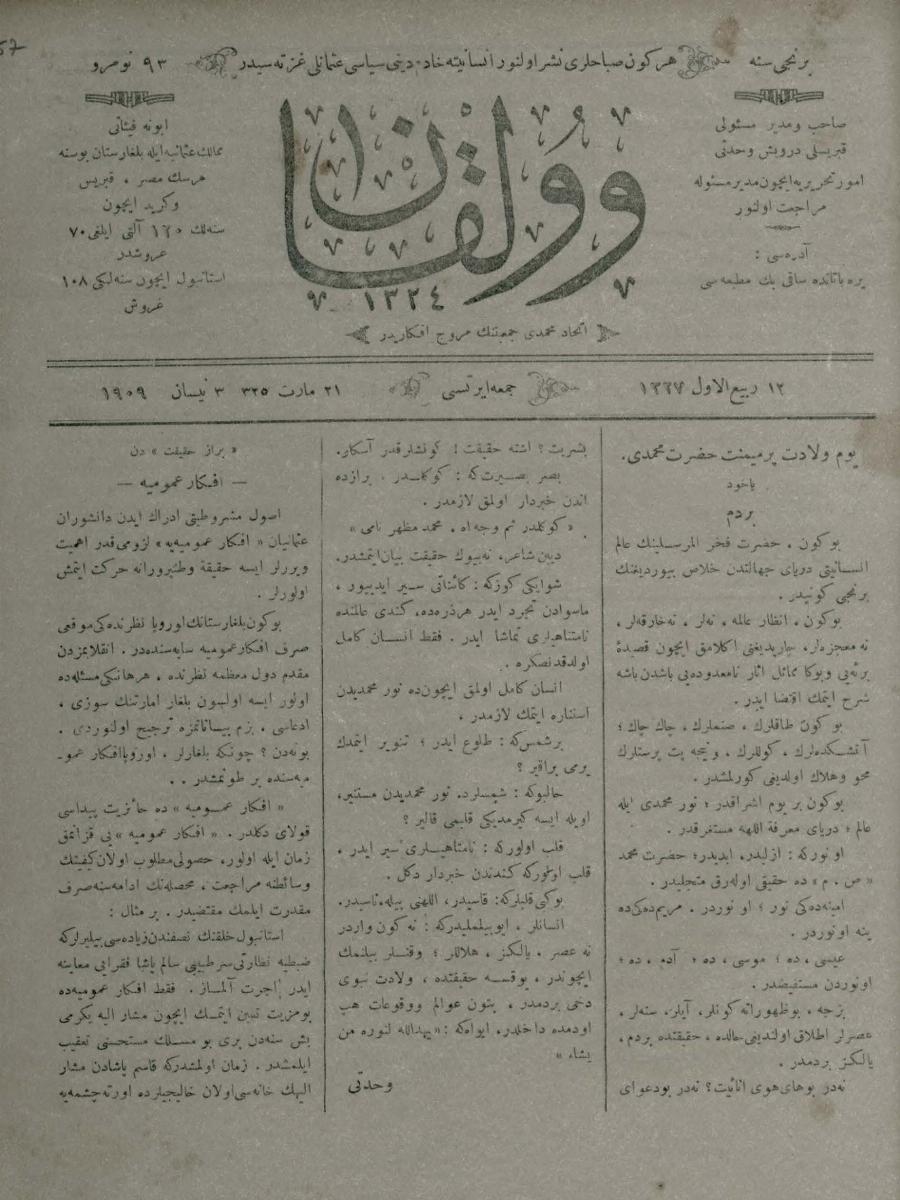 برنجی سنه
هركون صباحلری نشر اولنور انسانیته خادم دینی سیاسی عثمانلی غزته سیدر
نومرو ٩٣
صاحب و مدیر مسئولی
قبریسلی درویش وحدتی
امور تحریریه ایچون مدیر مسئوله
مراجعت اولنور
آدره‌سی :
یره باتانده ساقی بك مطبعه سی
وولقان
١٣٢٤
اتحاد محمدی جمعیتنك مروج افكاریدر
ابونه فیئاتی
ممالك عثمانیه ایله بلغارستان بوسنه
هرسك مصر ، قبریس
وكرید ایچون
سنه‌لك ١٢٠ آلتی ایلغی ٧٠
غروشدر
استانبول ایچون سنه‌لیكی ١٠٨
غروش
١٢ ربیع الاول ١٣٢٧
جمعه ایرتسی
٢١ مارت ٣٢٥ ٣ نیسان ١٩٠٩
یوم ولادت پرمیمنت حضرت محمدی.
یاخود
بردم
بوكون ، حضرت فخر المرسلینك عالم
انسانیتی دریای جهالتدن خلاص بیوردیغنك
برنجی كونیدر .
بوكون ، انظار عالمه ، نه‌لر ، نه‌خارقه‌لر ،
نه معجزه‌لر، ایچون قصیدهٔ
برئه‌یی وبوكا مماثل آثار نامعدوده‌یی باشدن باشه
شرح ایتمك اقتضا ایدر .
بو كون طاقلرك ، صنملرك ، چاك چاك ؛
آتشكده‌لرك ، كوللرك ، ونیجه پت پرستلرك
محو وهلاك اولدیغی كورلمشدر .
بوكون بر یوم اشراقدر ؛ نور محمدی ایله
عالم ؛ دریای معرفة اللهه مستغرقدر .
او نوركه : ازلیدر، ابدیدر؛ حضرت محمد
« ص . م » ده حقیقی اوله‌رق متجلیدر .
امینه‌ده‌كی نور ؛ او نوردر . مریم‌ده‌كی‌ده
ینه او نوردر .
عیسی ، ده ؛ موسی ، ده ؛ آدم ، ده ؛
اونوردن مستفیضدر .
بزجه ، بوظهوراته كونلر، آیلر، سنه‌لر ،
عصرلر اطلاق اولندیغی حالده ، حقیقتده بردم ،
یالكز بردمدر .
نه‌در بوهای هوی انانیت؟ نه‌در بودعوای
بشریت؟ اشته حقیقت! كونشلر قدر آشكار.
بصر بصیرت‌كه : كوكلدر . برازده
اندن خبردار اولمق لازمدر .
« كوكلدر ثم وجه اه . محمد مظهر نامی »
دیین شاعر، نه‌بیوك حقیقت بیان ایتمشدر.
شوایكی كوزكه : كائناتی سیر ایدییور ،
ماسوادن تجرد ایدر هرذره‌ده، كندی عالمنده
نامتناهیلری تماشا ایدر . فقط انسان كامل
اولدقدنصكره .
انسان كامل اولمق ایچون‌ده نور محمدیدن
استناره ایتمك لازمدر .
برشمس‌كه : طلوع ایدر ؛ تنویر ایتمدك
یرمی براقیر ؟
حالبوكه : شمسلرده، نور محمدیدن مستنیر،
اویله ایسه كیرمدیكی قلبمی قالیر ؟
قلب اولوركه : نامتناهیلری سیر ایدر .
قلب اولمیوركه كندندن خبردار دكل .
بوكبی قلبلركه: قاسیدر، اللهنی بیله ناسیدر.
انسانلر ، ایوبیلملیدركه : نه كون واردر
نه عصر . یالكز ، هلاللر ؛ وقتلر بیلنمك
ایچوندر ، یوقسه حقیقتده ، ولادت نبوی
دخی بردمدر ، بتون عوالم ووقوعات هب
اودمده داخلدر. ایواه‌كه : « یهدالله لنوره من
یشاء »
وحدتی
« براز حقیقت » دن
— افكار عمومیه —
اصول مشروطیتی ادراك ایدن دانشوران
عثمانیان « افكار عمومیه‌یه » لزومی قدر اهمیت
ویررلر ایسه حقیقة وطنپرورانه حركت ایتمش
اولورلر .
بوكون بلغارستانك اوروپا نظرنده‌كی موقعی
صرف افكار عمومیه سایه سنده‌در . انقلابمزدن
مقدم دول معظمه نظرنده ، هر هانكی مسئله‌ده
اولور ایسه اولسون بلغار امارتنك سوزی ،
ادعاسی ، بزم بیاناتمزه ترجیح اولنوردی .
بونه‌دن ؟ چونكه بلغارلر ، اوروپا افكار عمو-
میه‌سنده یر طوتمشدر . .
« افكار عمومیه » ده حائزیت پیداسی
قولای دكلدر . « افكار عمومیه » یی قزانمق
زمان ایله اولور، حصولی مطلوب اولان كیفیتك
وسائطنه مراجعت ، محصله‌نك ادامه سنه صرف
مقدرت ایلمك مقتضیدر . بر مثال :
استانبول خلقنك نصفندن زیاده‌سی بیلیرلركه
ضبطیه نظارتی سرطبیبی سالم پاشا فقرایی معاینه
ایدر اجرت آلماز . فقط افكار عمومیه‌ده
بو مزیت تبین ایتمك ایچون مشار الیه یكرمی
بش سنه‌دن بری بو مسلك مستحسنی تعقیب
ایلمشدر . زمان اولمشدركه قاسم پاشادن مشار
الیهك خانه سی اولان خالیجیلرده اورته چشمه‌یه